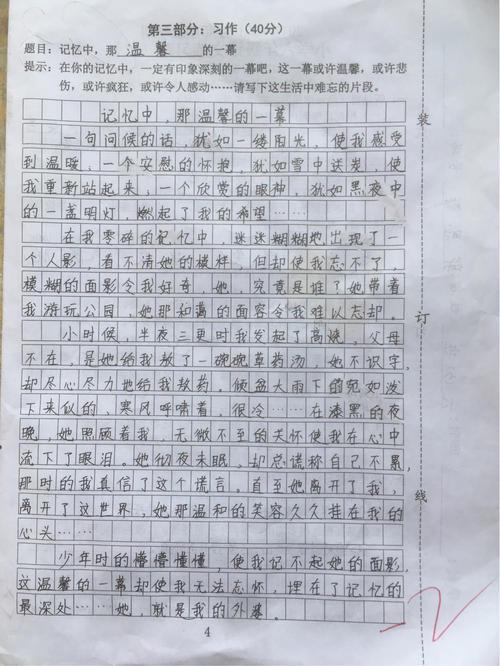 第三部分：习作（40分）
题目：记忆中，那 温馨 的一幕
提示：在你的记忆中，一定有印象深刻的一幕吧，这一幕或许温馨，或许悲
伤，或许疯狂，或许令人感动……请写下这生活中难忘的片段。
记忆中，那温馨的一幕
一句问候的话，犹如一缕阳光，使我感受
到温暖，一个安慰的怀抱，犹如雪中送炭，使
我重新站起来，一个欣赏的眼神，犹如黑夜中
的一盏明灯，燃起了我的希望……
在我零碎的记忆中，迷迷糊糊地出现了一
个人影，看不清她的模样，但却使我忘不了，
模糊的面影令我好奇，她，究竟是谁？她带着
我游玩公园，她那和蔼的面容令我难以忘却。
小时候，半夜三更时我发起了高烧，父母
不在，是她给我熬了一碗碗草药汤，她不识字，
却尽心尽力地给我熬药，倾盆大雨下的宛如泼
下来似的，寒风呼啸着，很冷……在漆黑的夜
晚，她照顾着我，无微不至的关怀使我在心中
流下了眼泪。她彻夜未眠，却总谎称自己不累，
那时的我真信了这个谎言。直至她离开了我，
离开了这世界，她那温和的笑容久久挂在我的
心头……
少年时的懵懵懂懂，使我记不起她的面影，
这温馨的一幕却使我无法忘怀，埋在了记忆的
最深处……她，就是我的外婆。
4
装
订
线